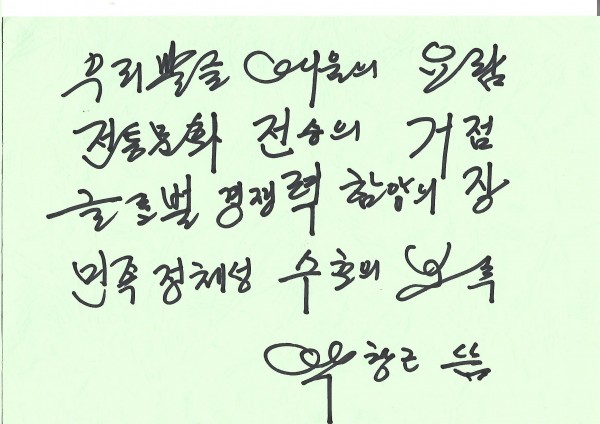 우리말글 요람
전통문화 전승의 거점
글로벌 경쟁력 함양의 장
민족 정체성 수호의 보루
창근 씀